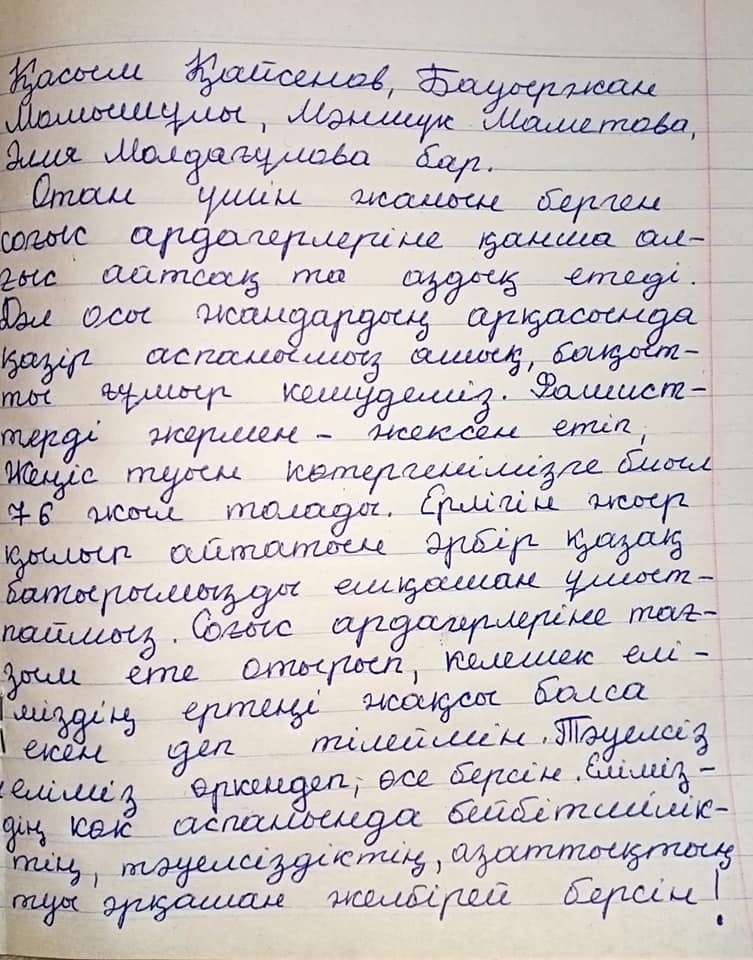 Қасым Қайсенов, Бауыржан
Момышұлы, Мәншүк Маметова,
Әлия Молдағұлова бар.
Отан үшін жанын берген
соғыс ардагерлеріне қанша ал-
ғыс айтсақ та аздық етеді.
Дәл осы жандардың арқасында
қазір аспанымыз ашық, бақыт-
ты ғұмыр кешудеміз. Фашист-
терді жермен - жексен етіп,
Жеңіс туын көтергенімізге биыл
76 жыл толады. Ерлігін жыр
қылып айтатын әрбір қазақ
батырымызды ешқашан ұмыт-
паймыз. Соғыс ардагерлеріне тағ-
зым ете отырып, келешек елі-
міздің ертеңі жақсы болса
екен деп тілеймін. Тәуелсіз
еліміз өркендеп, өсе берсін. Еліміз-
дің көк аспанында бейбітшілік-
тің, тәуелсіздіктің, азаттықтың
туы әрқашан желбірей берсін!